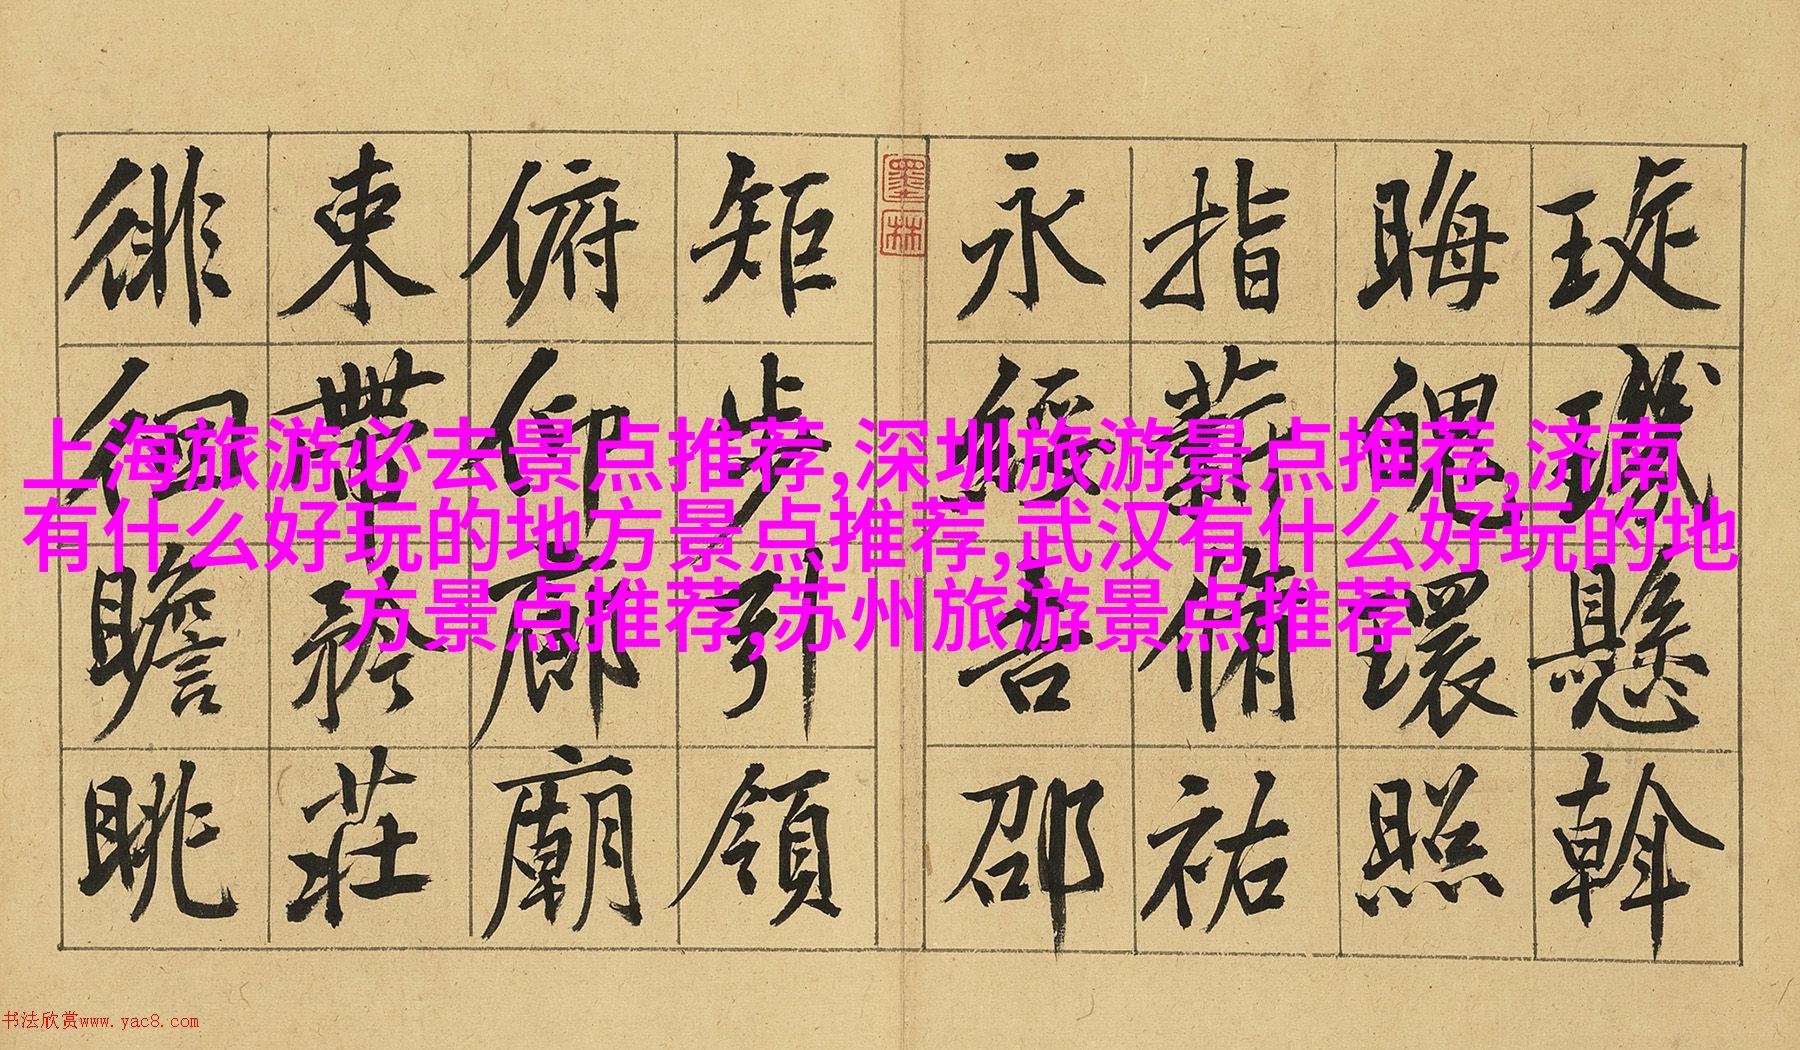 上海旅游必去景点推荐,深圳旅游景点推荐,济南
有什么好玩的地方景点推荐,武汉有什么好玩的地
方景点推荐,苏州旅游景点推荐
琁璣懸斡
晦魄環照
指薪脩祐
永綏吉邵
墨林
矩步引領
俯仰廊廟
束帶矜莊
徘徊瞻眺
书法欣赏www.yac8.com